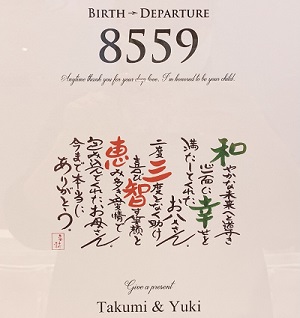 BIRTH → DEPARTURE
8559
Anytime thank you for your deep love. I'm honored to be your child.
和やかな未来へと導き
心一面に幸せを
満たしてくれた、お父さん。
二度三度となく助け
喜び智
恵み多き愛情で
包み込んでくれた、お母さん。
今まで本当に
ありがとう。
Give a present
Takumi & Yuki